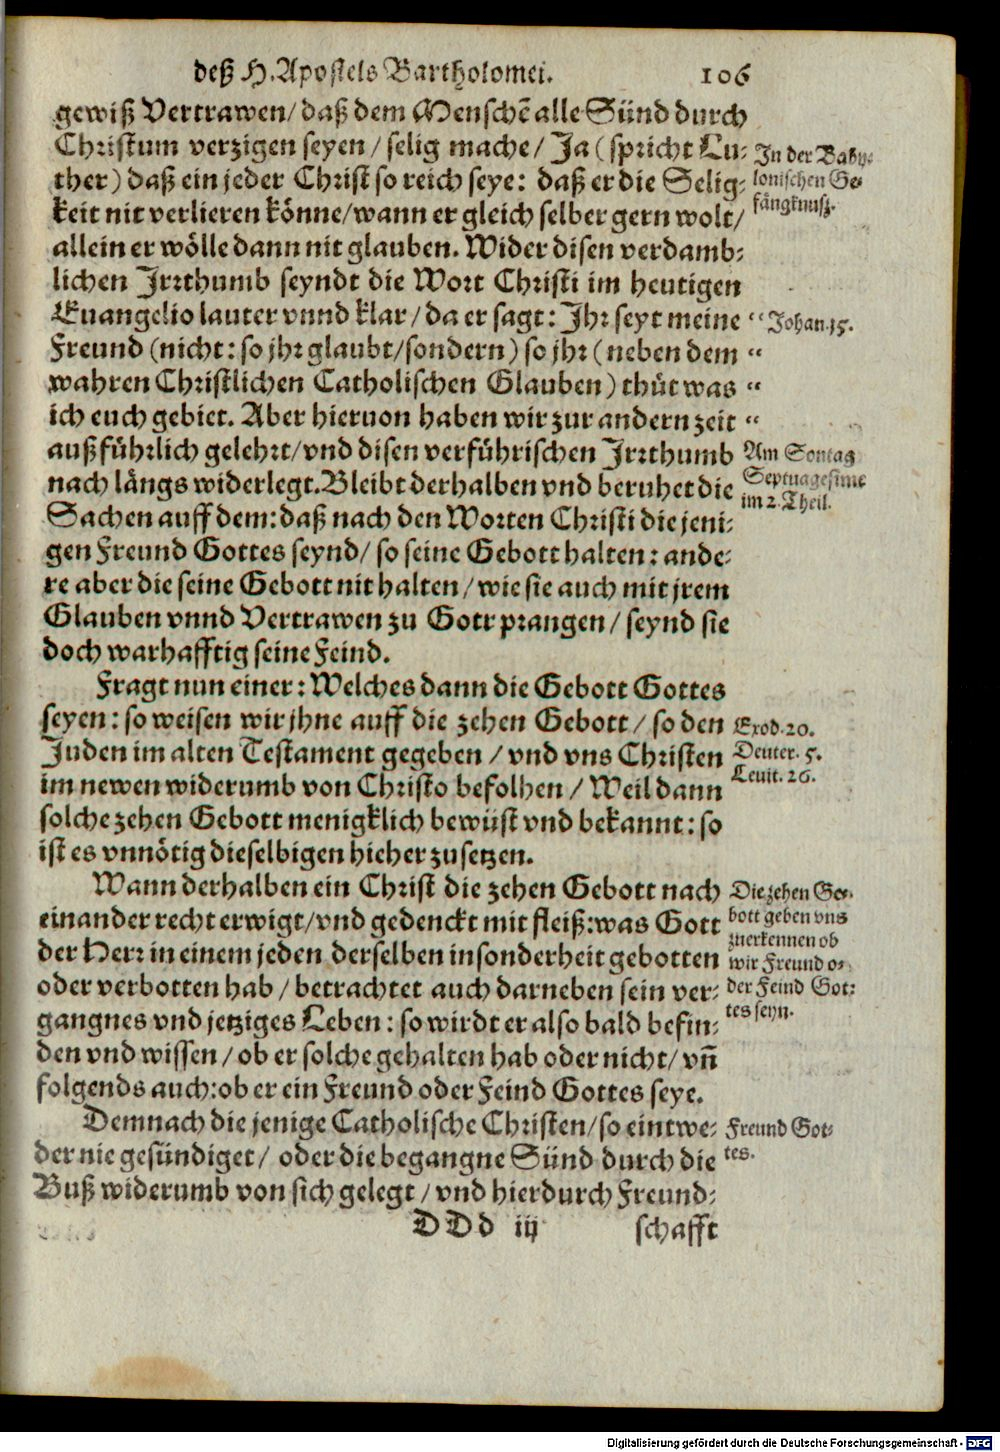 deß H. Apostels Bartholomei. 106
gewiß Vertrawen/ daß dem Menschẽ alle Sünd durch
Christum verzigen seyen/ selig mache/ Ja (spricht Lu-
ther) daß ein jeder Christ so reich seye: daß er die Selig-
keit nit verlieren könne/ wann er gleich selber gern wolt/
allein er wölle dann nit glauben. Wider disen verdamb-
lichen Irrthumb seyndt die Wort Christi im heutigen
Euangelio lauter vnnd klar/ da er sagt: Ihr seyt meine
Freund (nicht: so jhr glaubt/ sondern) so jhr (neben dem
wahren Christlichen Catholischen Glauben) thůt was
ich euch gebiet. Aber hieruon haben wir zur andern zeit
außführlich gelehrt/ vnd disen verführischen Irrthumb
nach längs widerlegt. Bleibt derhalben vnd beruhet die
Sachen auff dem: daß nach den Worten Christi die jeni-
gen Freund Gottes seynd/ so seine Gebott halten: ande-
re aber die seine Gebott nit halten/ wie sie auch mit jrem
Glauben vnnd Vertrawen zu Gott prangen/ seynd sie
doch warhafftig seine Feind.
Fragt nun einer: Welches dann die Gebott Gottes
seyen: so weisen wir jhne auff die zehen Gebott/ so den
Juden im alten Testament gegeben/ vnd vns Christen
im newen widerumb von Christo befolhen/ Weil dann
solche zehen Gebott menigklich bewüst vnd bekannt: so
ist es vnnötig dieselbigen hieher zusetzen.
Wann derhalben ein Christ die zehen Gebott nach
einander recht erwigt/ vnd gedenckt mit fleiß: was Gott
der Herr in einem jeden derselben insonderheit gebotten
oder verbotten hab/ betrachtet auch darneben sein ver-
gangnes vnd jetziges Leben: so wirdt er also bald befin-
den vnd wissen/ ob er solche gehalten hab oder nicht/ vñ
folgends auch: ob er ein Freund oder Feind Gottes seye.
Demnach die jenige Catholische Christen/ so eintwe-
der nie gesündiget/ oder die begangne Sünd durch die
Buß widerumb von sich gelegt/ vnd hierdurch Freund-
DDd iij schafft
In der Baby-
lonischen Ge-
fängknuß.
“ Johan. 15.
“
“
“
Am Sontag
Septuagesime
im 2. Theil.
Exod. 20.
Deuter. 5.
Leuit. 26.
Die zehen Ge-
bott geben vns
zuerkennen ob
wir Freund o-
der Feind Got-
tes seyn.
Freund Got-
tes.
Digitalisierung gefördert durch die Deutsche Forschungsgemeinschaft - DFG